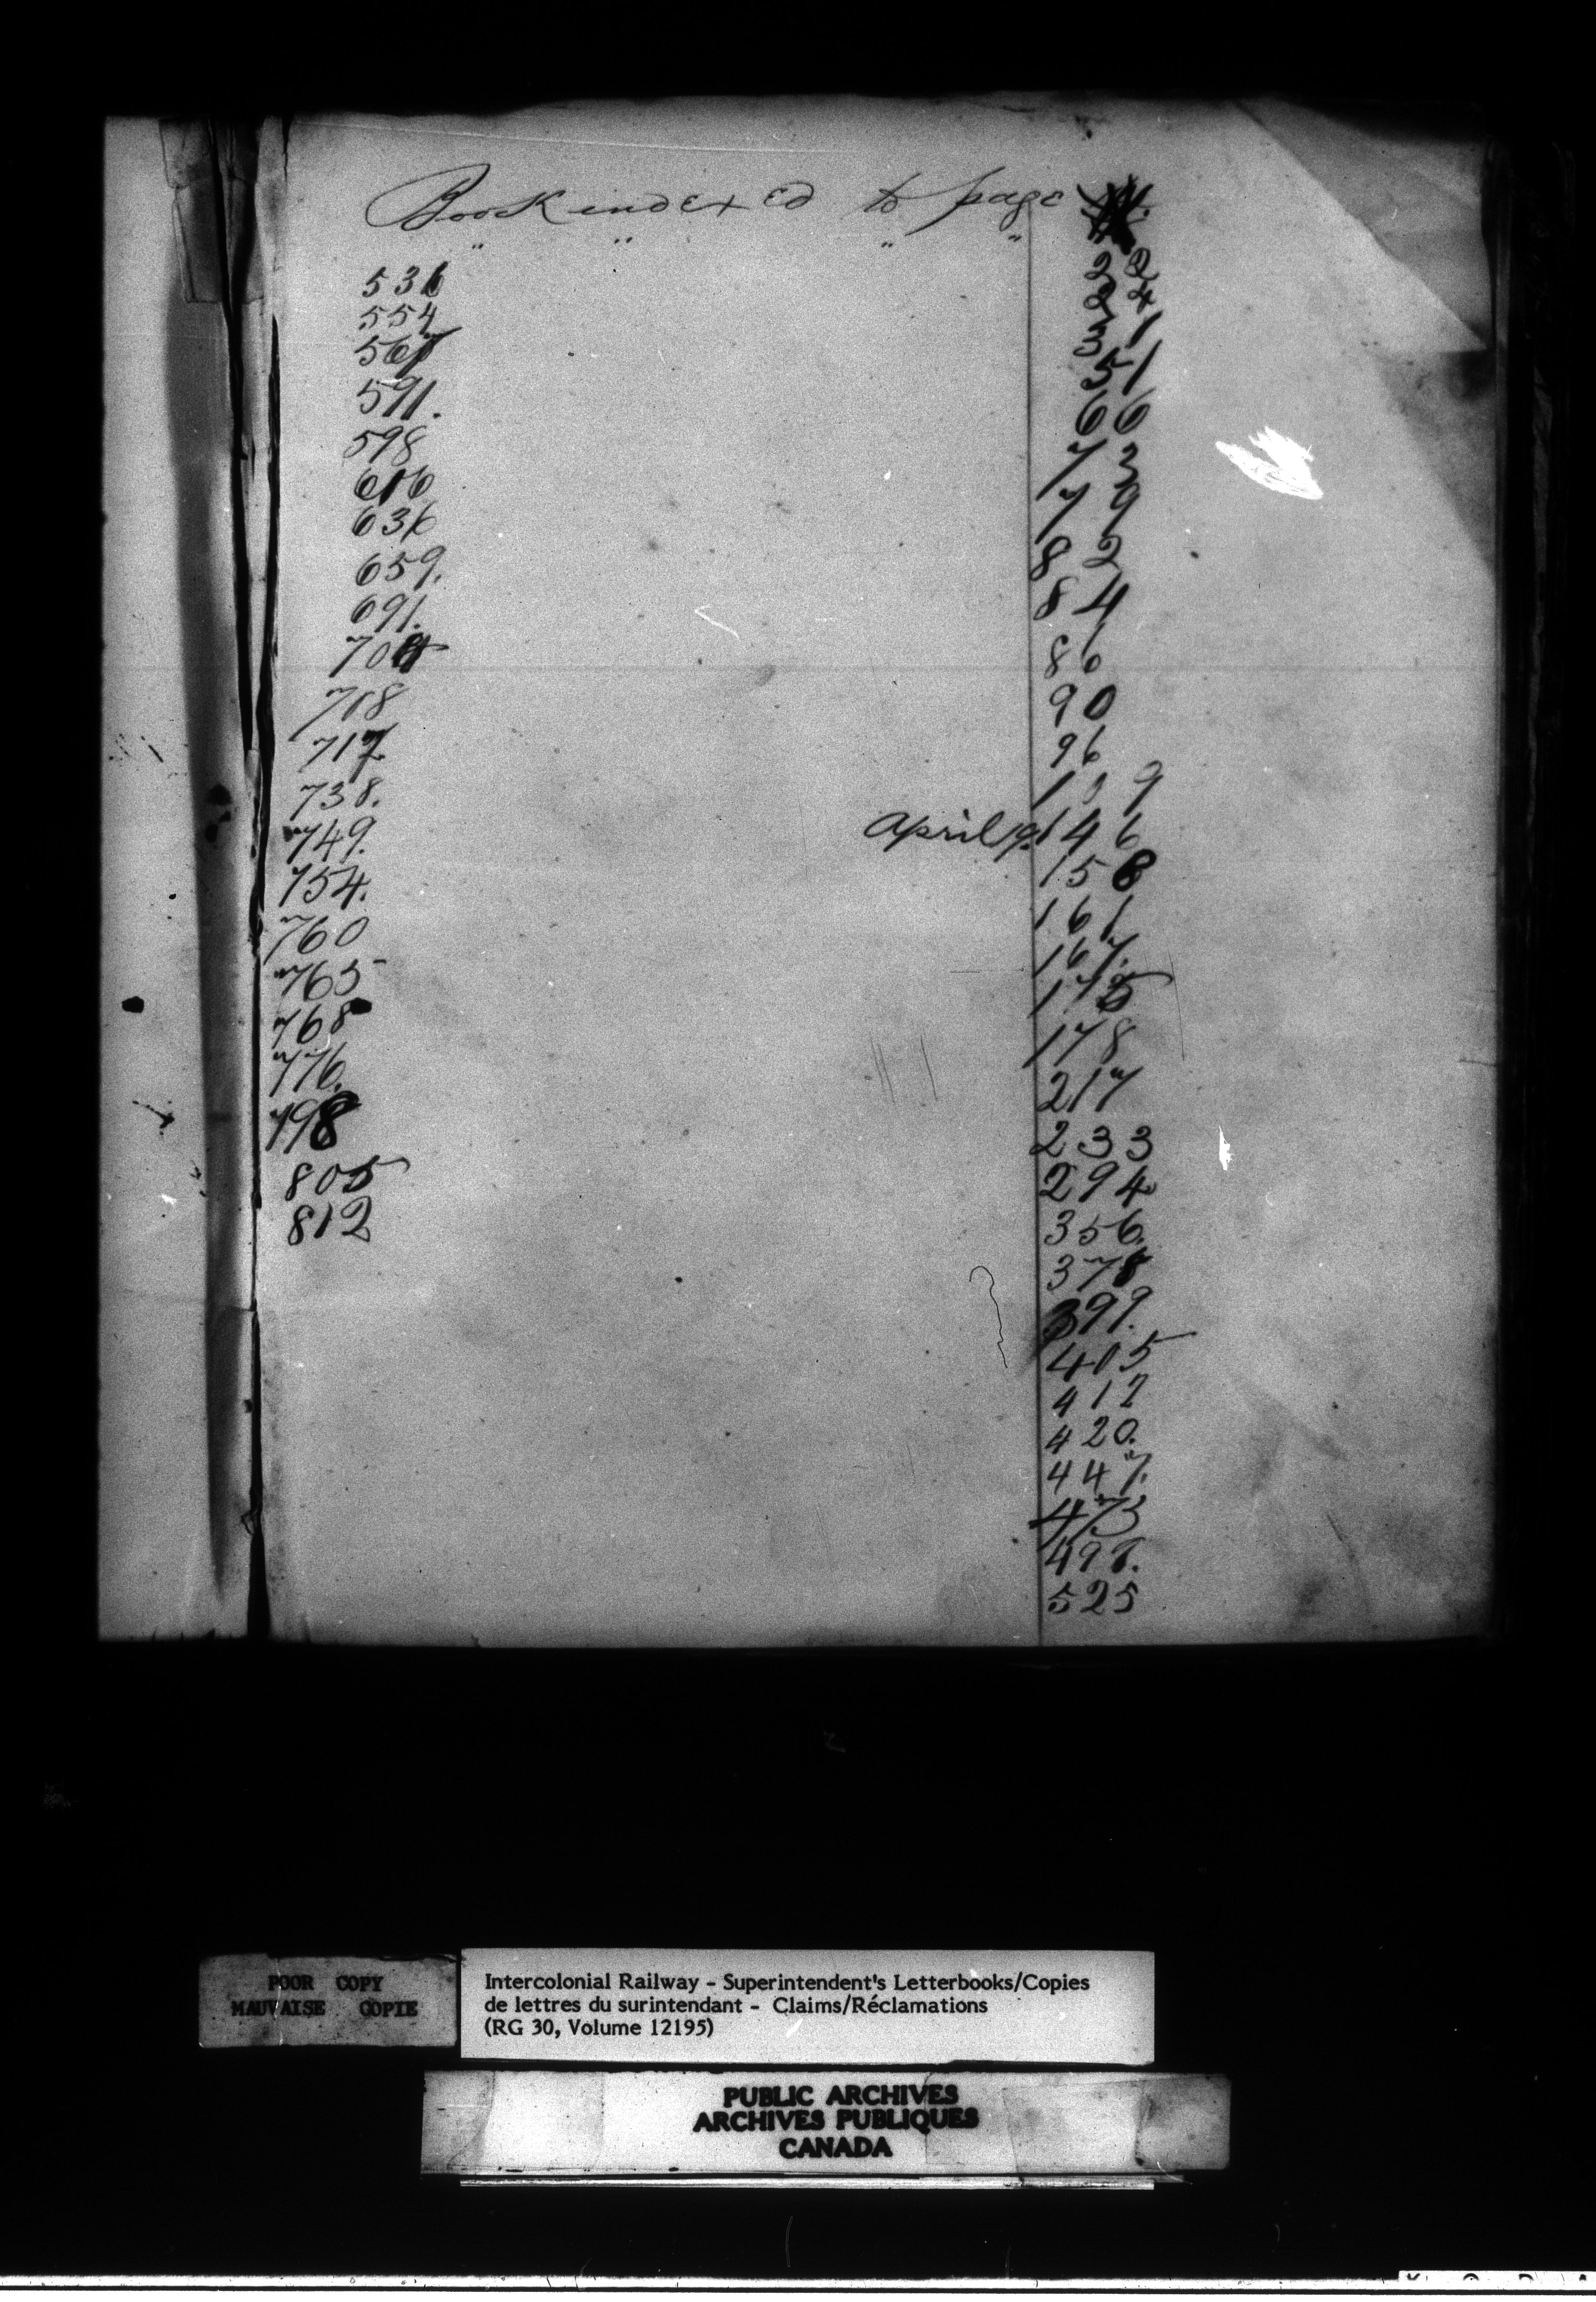 Book indexed to page
" " " "
22
24
31
51
66
73
79
82
84
86
90
96
139
April 19. 146
158
161
167.
175
178
217
233
294
356.
378
399.
405
412
420.
447.
473
498.
525
536
554
567
591.
598
616
636
659.
691.
704
708
717
738.
749.
754.
760
765
768
776.
798
805
812
POOR COPY
MAUVAISE COPIE
Intercolonial Railway - Superintendent's Letterbooks/Copies
de lettres du surintendant - Claims/Réclamations
(RG 30, Volume 12195)
PUBLIC ARCHIVES
ARCHIVES PUBLIQUES
CANADA